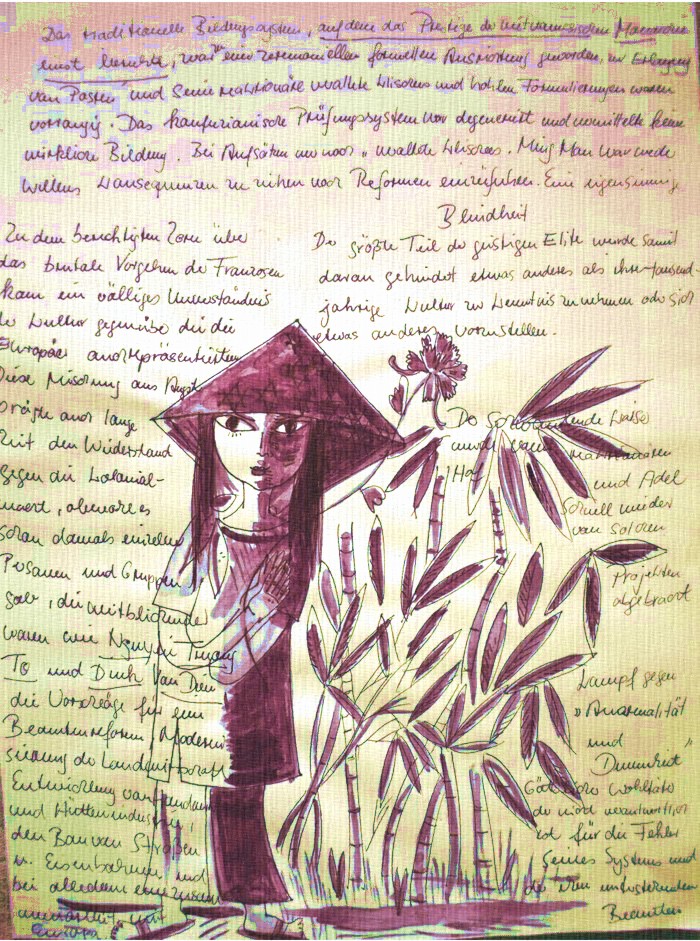 Das traditionelle Bildungssystem, auf dem das Prestige der vietnamesischen Mandarine
einst beruhte, war eine zeremoniellen formellen Ausrichtung geworden, zur Erlangung
von Posten und Seine reaktionäre uralte Klischees und hohlen Formulierungen waren
vorrangig. Das konfuzianische Prüfungssystem war degeneriert und vermittelte keine
wirkliche Bildung. Bei Aufsätzen nur noch uralte Klischees. Ming Man war weder
willens Konsequenzen zu ziehen noch Reformen einzuführen. Eine eigensinnige
Blindheit
Der größte Teil der geistigen Elite wurde somit
daran gehindert etwas anderes als ihre tausend-
jährige Kultur zur Kenntnis zu nehmen oder sich
etwas anderes vorzustellen.
Zu dem berechtigten Zorn über
das brutale Vorgehen der Franzosen
kam ein völliges Unverständnis
der Kultur gegenüber die die
Europäer auch repräsentierten
Diese Mischung aus Angst
prägte auch lange
Zeit den Widerstand
gegen die Kolonial-
macht, obwohl es
schon damals einzelne
Personen und Gruppen
gab, die weitblickender
waren wie Nguyen Truong
To und Dinh Van Dien
die Vorschläge für eine
Beamtenreform, Moderni
sierung der Landwirtschaft
Entwicklung von
und Hüttenindustrie,
den Bau von Straßen
u. Eisenbahnen und
bei alledem eine
mit
Europa.
Der
wurde vom reaktionären
Hof und Adel
schnell wieder
von solchen
Projekten
abgebracht
Kampf gegen
"Anormalität
und
Dummheit"
Wohltäter
der wird verantwortlich
ist für die Fehler
seines Systems und
Beamten